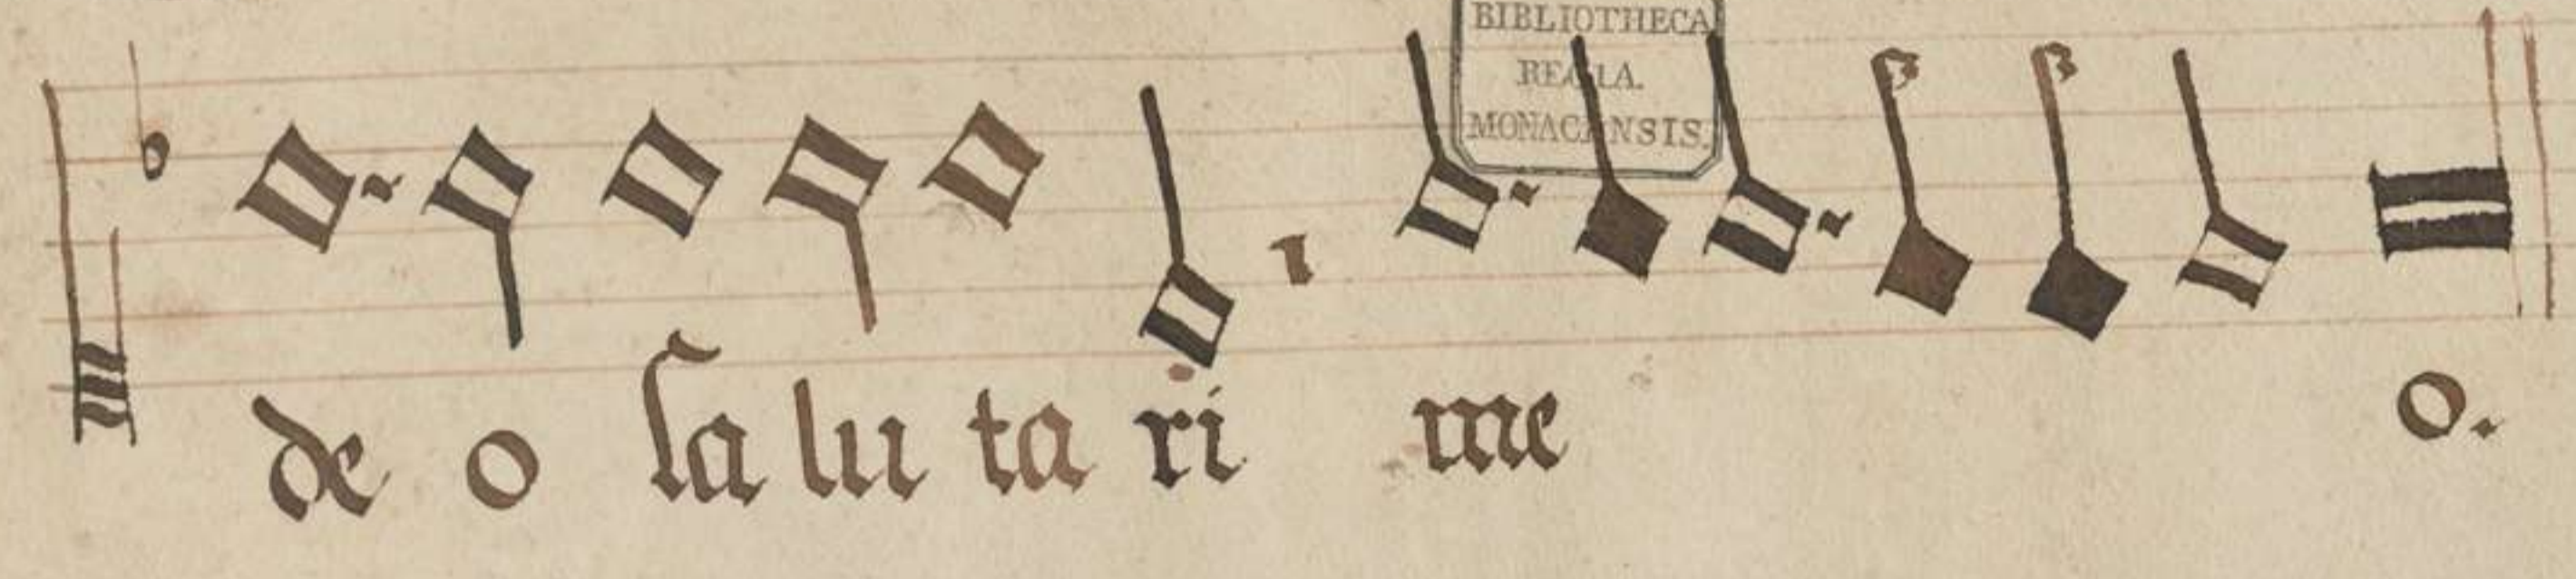 BIBLIOTHECA
REGIA.
MONACENSIS.
de o salu ta ri me o.